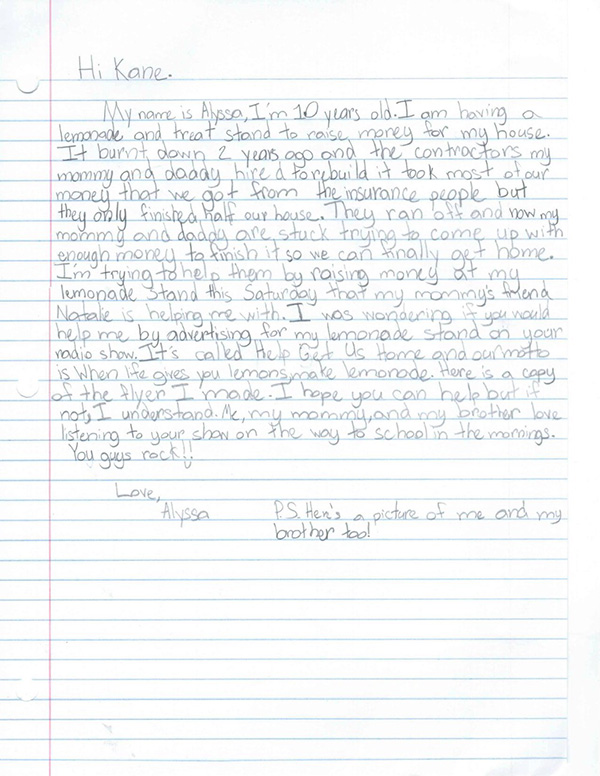 Hi Kane.
My name is Alyssa, I'm 10 years old. I am having a
lemonade and treat stand to raise money for my house.
It burnt down 2 years ago and the contractors my
mommy and daddy hired to rebuild it took most of our
money that we got from the insurance people but
they only finished half our house. They ran off and now my
mommy and daddy are stuck trying to come up with
enough money to finish it so we can finally get home.
I'm trying to help them by raising money at my
lemonade stand this Saturday that my mommy's friend
Natalie is helping me with. I was wondering if you would
help me by advertising for my lemonade stand on your
radio show. It's called Help Get Us Home and our motto
is When life gives you lemons, make lemonade. Here is a copy
of the flyer I made. I hope you can help but if
not, I understand. Me, my mommy, and my brother love
listening to your show on the way to school in the mornings.
You guys rock!!
Love,
Alyssa
P.S. Here's a picture of me and my
brother too!